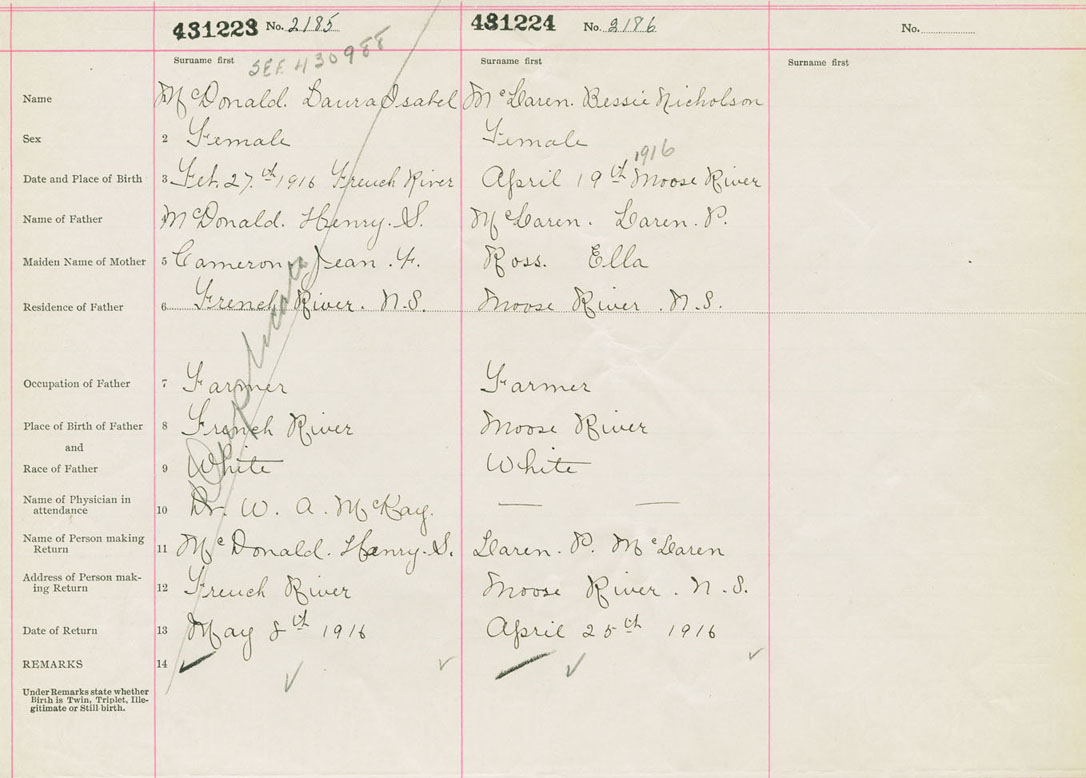 431223 No. 2185 431224 No. 2186 No.
SEE 430988
Surname first Surname first Surname first
Name McDonald. Laura Isabel McLaren. Bessie Nicholson
Sex 2 Female Female
1916
Date and Place of Birth 3 Feb. 27th 1916 French River April 19th Moose River
Name of Father McDonald. Henry. S. McLaren. Laren. P.
Maiden Name of Mother 5 Cameron, Jean. F. Ross. Ella
Residence of Father 6 French River. N.S. Moose River. N.S.
Duplicate
Occupation of Father 7 Farmer Farmer
Place of Birth of Father 8 French River Moose River
and
Race of Father 9 White White
Name of Physician in
attendance 10 Dr. W. A. McKay. — —
Name of Person making
Return 11 McDonald. Henry. S. Laren. P. McLaren
Address of Person mak-
ing Return 12 French River Moose River. N.S.
Date of Return 13 May 8th 1916 April 25th 1916
REMARKS 14
Under Remarks state whether
Birth is Twin, Triplet, Ille-
gitimate or Still-birth.